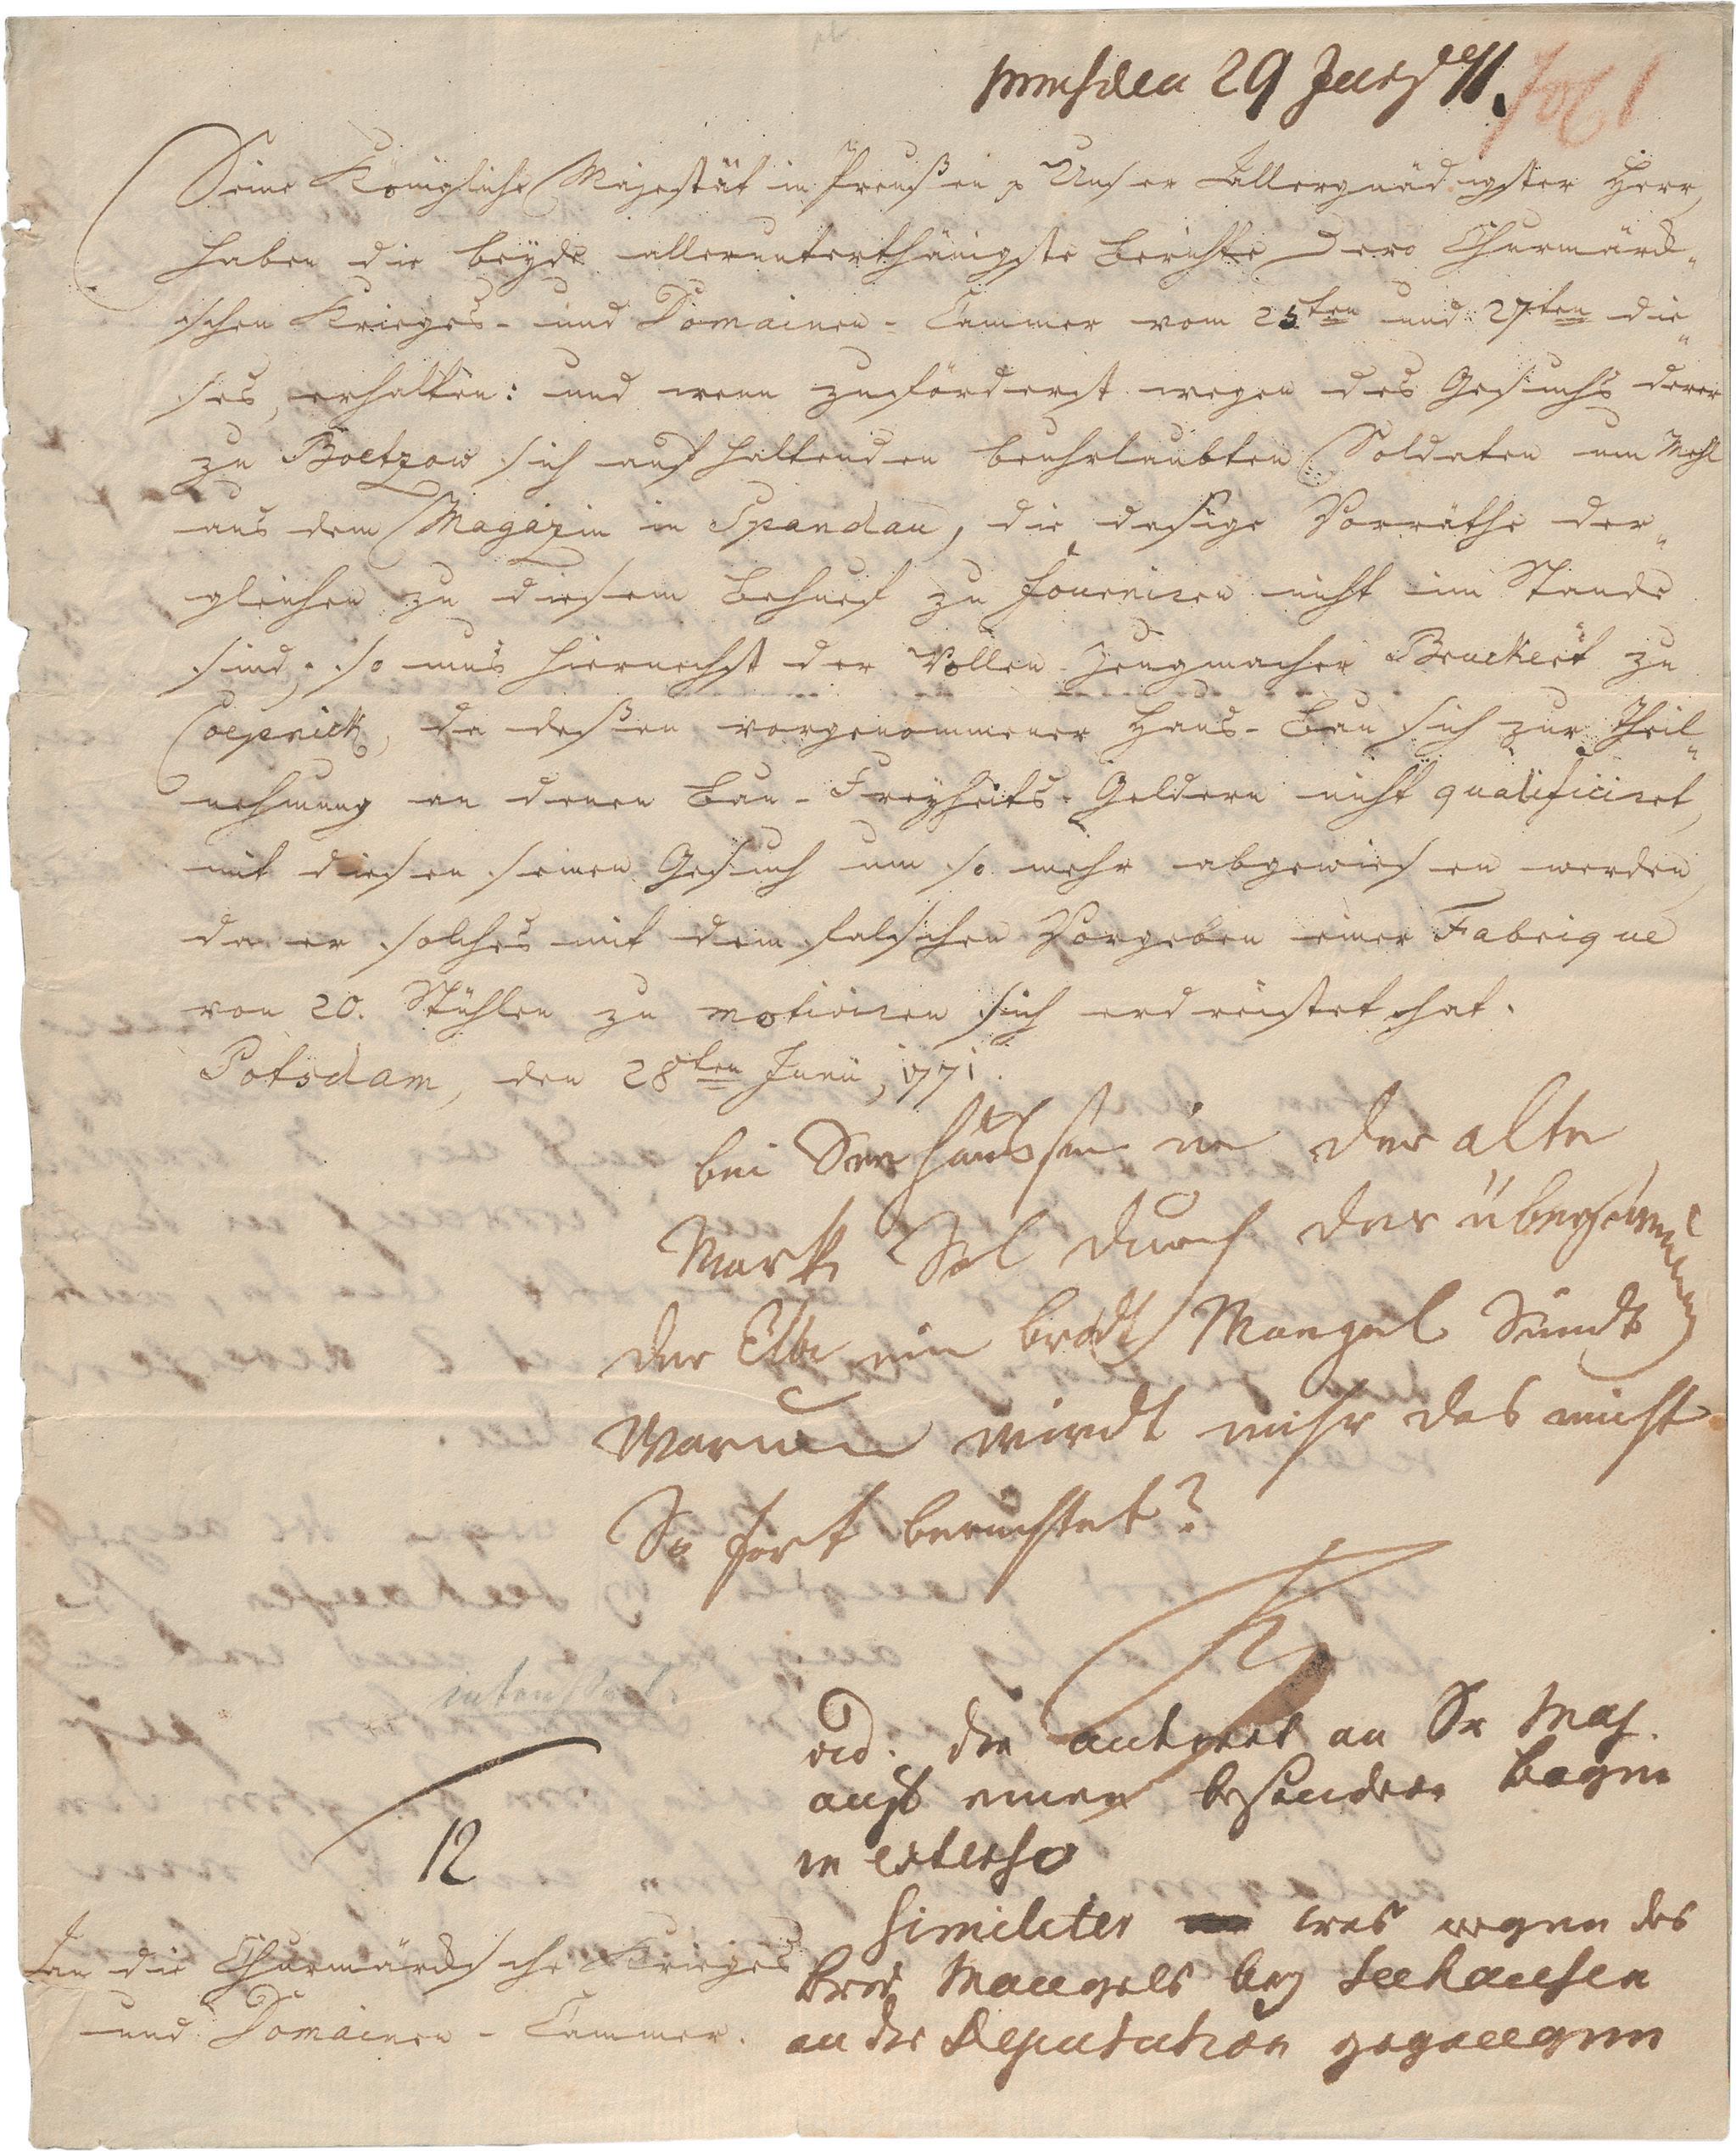 præs. den 29 Juny 71.
Seine Königliche Majestät in Preußen p Unser Allergnädigster Herr,
haben die beyde allerunterthänigste Berichte Dero Churmärck-
schen Krieges- und Domainen-Cammer vom 25ten und 27ten die-
ses, erhalten: und wenn zuförderst wegen des Gesuchs derer
zu Boetzow sich aufhaltenden beuhrlaubten Soldaten um Mehl
aus dem Magazin in Spandau, die dasige Vorräthe der-
gleichen zu diesem Behuef zu fourniren nicht im Stande
sind; so mus hiernechst der Wollen-Zeugmacher Bruckert zu
Coepnick, da deßen vorgenommener Haus-Bau sich zur Theil-
nehmung an denen Bau-Freyheits-Geldern nicht qualificiret,
mit diesen seinen Gesuch um so mehr abgewiesen werden,
da er solches mit dem falschen Vorgeben einer Fabrique
von 20. Stühlen zu motiviren sich erdreistet hat.
Potsdam, den 28ten Junii, 1771.
bei Seehausen in der alte
Mark Sol durch der überschwemmung
der Elbe ein brodt Mangel Seindt
warum wirdt mihr das nicht
So fort berichtet?
Fch
vid. die antwort an Sr Maj.
auf einen besondern bogen
in extenso
similiter was wegen des
brod Mangels bey Seehausen
an die Deputation gegangen
12
An die Churmärcksche Krieges
und Domainen-Cammer.